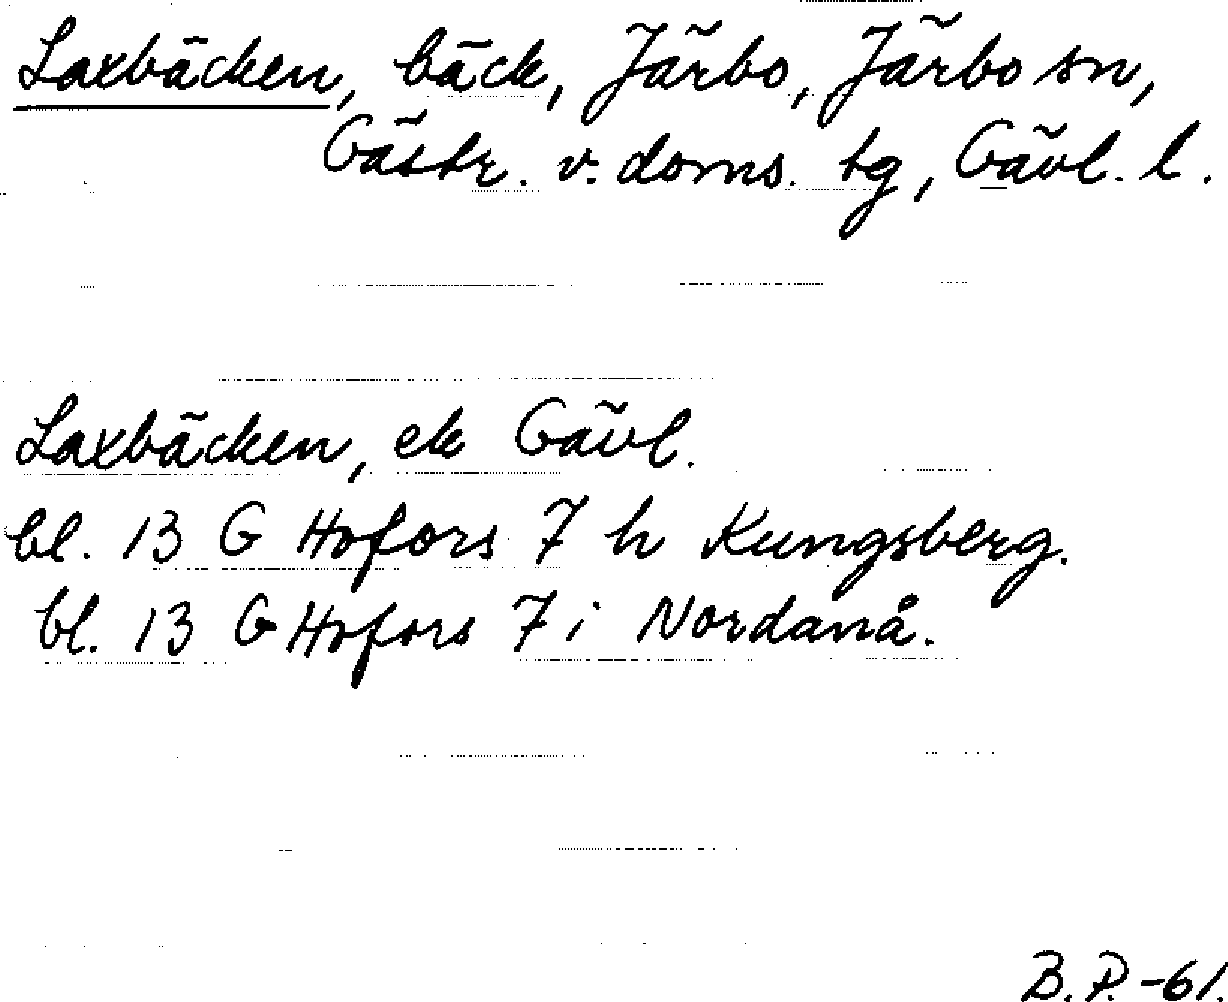 Laxbäcken, bäck, Järbo, Järbo sn,
Gästr. v. doms. tg, Gävl. l.
Laxbäcken, ek Gävl.
bl. 13 G Hofors 7 h Kungsberg.
bl. 13 G Hofors 7 i Nordanå.
B.P. -61.